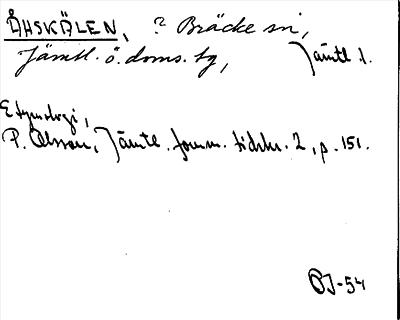 ÅHSKÄLEN, ? Bräcke sn,
Jämtl. ö. doms. tg, Jämtl. l.
Etymologi,
P. Olsson, Jämtl. fornm. tidskr. 2, p. 151.
OJ-54